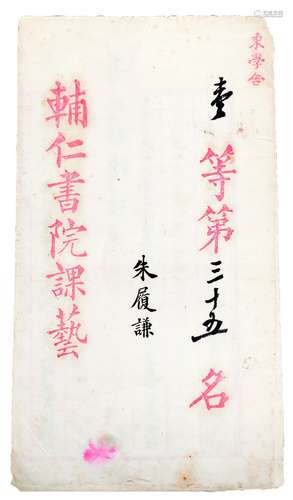 東學舍
壹等第三十五名
朱履謙
輔仁書院課藝